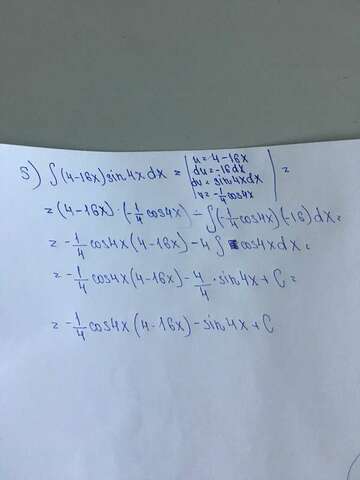 5) ∫(4-16x)sin4xdx = | u = 4-16x
du = -16dx
dv = sin4xdx
v = -1/4 cos4x | =
= (4-16x)·(-1/4 cos4x) - ∫(-1/4 cos4x)(-16)dx =
= -1/4 cos4x(4-16x) - 4 ∫ cos4xdx =
= -1/4 cos4x(4-16x) - 4/4 · sin4x + C =
= -1/4 cos4x(4-16x) - sin4x + C